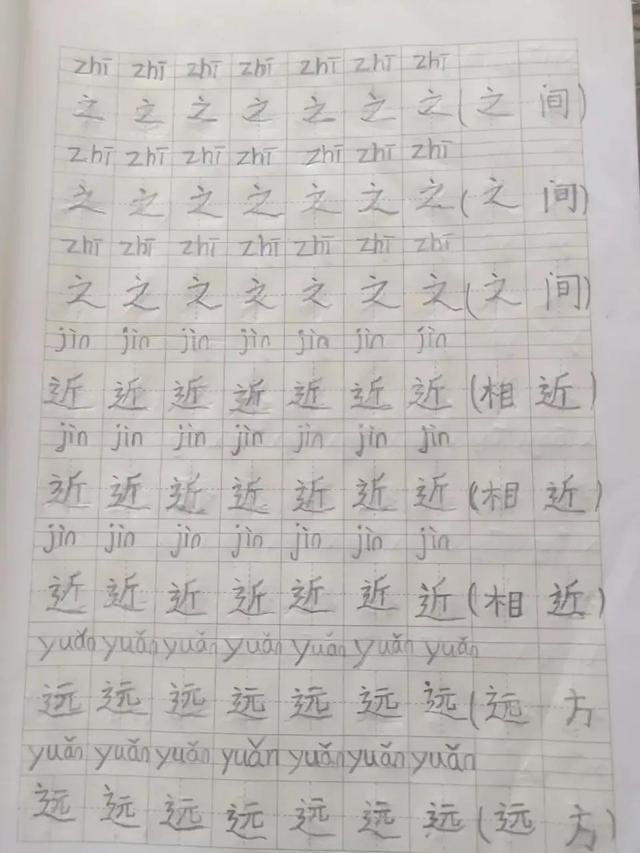 zhī zhī zhī zhī zhī zhī zhī
之 之 之 之 之 之 之 (之 间)
zhī zhī zhī zhī zhī zhī zhī
之 之 之 之 之 之 之 (之 间)
zhī zhī zhī zhī zhī zhī zhī
之 之 之 之 之 之 之 (之 间)
jìn jìn jìn jìn jìn jìn jìn
近 近 近 近 近 近 近 (相 近)
jìn jìn jìn jìn jìn jìn jìn
近 近 近 近 近 近 近 (相 近)
jìn jìn jìn jìn jìn jìn jìn
近 近 近 近 近 近 近 (相 近)
yuǎn yuǎn yuǎn yuǎn yuǎn yuǎn yuǎn
远 远 远 远 远 远 远 (远 方
yuǎn yuǎn yuǎn yuǎn yuǎn yuǎn yuǎn
远 远 远 远 远 远 远 (远 方)